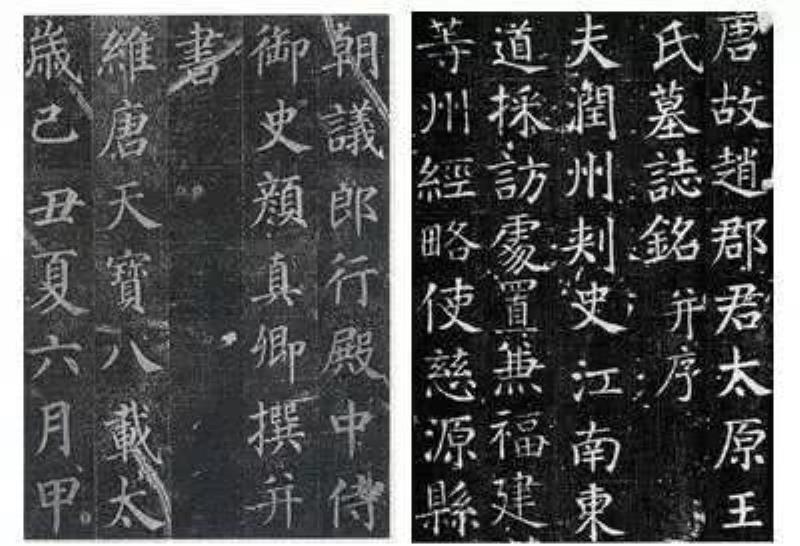 唐故趙郡君太原王
氏墓誌銘并序
夫潤州刾史江南東
道採訪處置兼福建
等州經略使慈源縣
朝議郎行殿中侍
御史顔真卿撰并
書
維唐天寶八載太
歳己丑夏六月甲